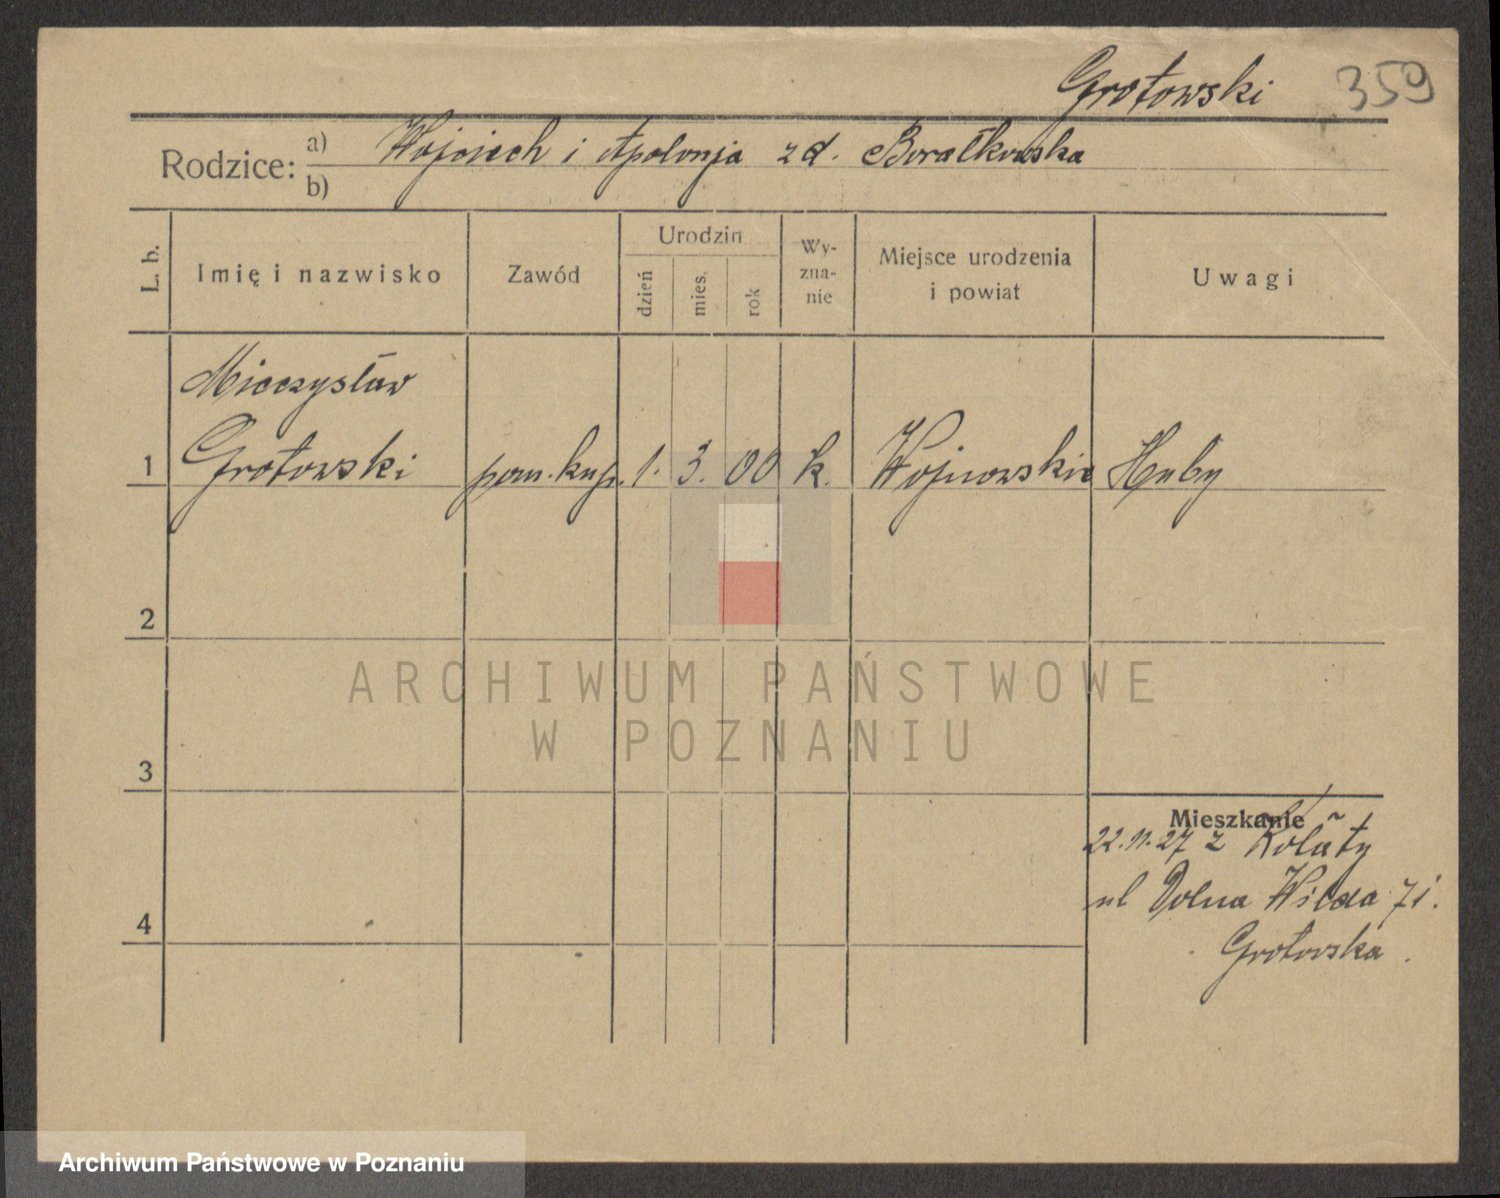 Grotowski 359
Rodzice: a) Wojciech i Apolonja zd. Borałkowska
b)
L. b. Imię i nazwisko Zawód Urodzin dzień mies. rok Wy-zna-nie Miejsce urodzenia i powiat Uwagi
Mieczysław
1 Grotowski pom. kup. 1. 3. 00 k. Wojnowskie Huby
2
ARCHIWUM PAŃSTWOWE
W POZNANIU
3
Mieszkanie
22.11.27 z
ul Dolna Wilda
4
Grotowska.
Archiwum Państwowe w Poznaniu